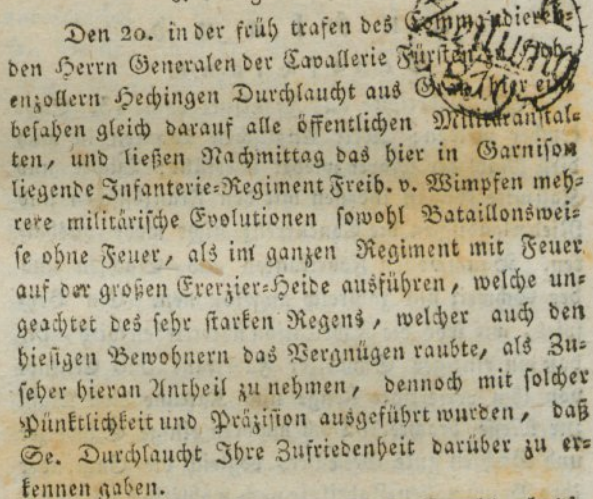 Den 20. in der früh trafen des Commandieren-
den Herrn Generalen der Cavallerie Fürsten Hoh-
enzollern-Hechingen Durchlaucht aus hier ein,
besahen gleich darauf alle öffentlichen Militäranstal-
ten, und ließen Nachmittag das hier in Garnison
liegende Infanterie-Regiment Freih. v. Wimpfen meh-
rere militärische Evolutionen sowohl Bataillonswei-
se ohne Feuer, als im ganzen Regiment mit Feuer
auf der großen Exerzier-Heide ausführen, welche un-
geachtet des sehr starken Regens, welcher auch den
hiesigen Bewohnern das Vergnügen raubte, als Zu-
seher hieran Antheil zu nehmen, dennoch mit solcher
Pünktlichkeit und Präzision ausgeführt wurden, daß
Se. Durchlaucht Ihre Zufriedenheit darüber zu er-
kennen gaben.